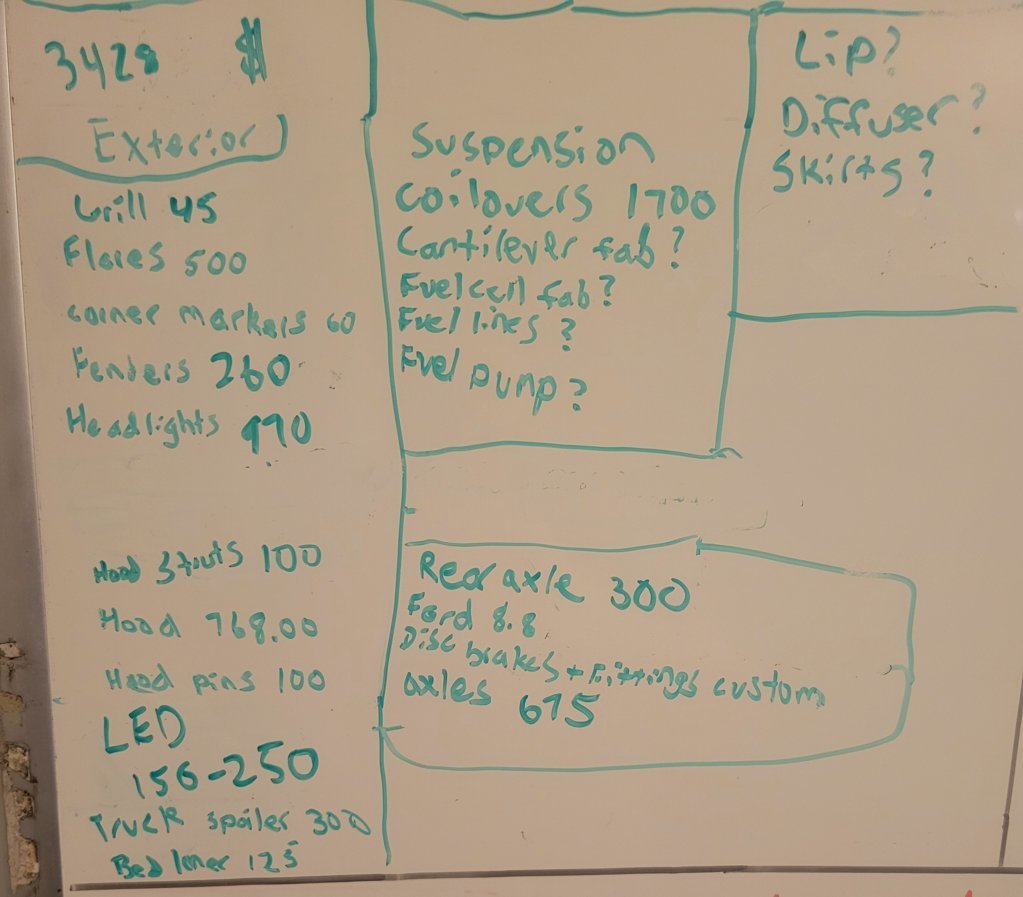 3428 $
Exterior
Grill 45
Flares 500
corner markers 60
Fenders 260
Headlights 970
Hood Struts 100
Hood 768.00
Hood pins 100
LED
150-250
Truck spoiler 300
Bed liner 125
Suspension
Coilovers 1700
Cantilever fab?
Fuel cell fab?
Fuel lines?
Fuel pump?
Lip?
Diffuser?
Skirts?
Rear axle 300
Ford 8.8
Disc brakes + Fittings custom
axles 675